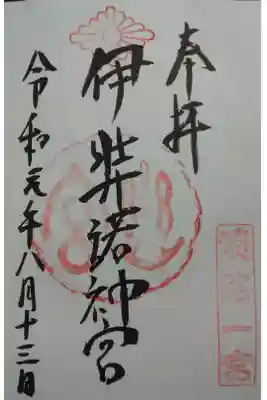 奉拝
伊弉諾神宮
令和元年八月十三日
淡路一宮